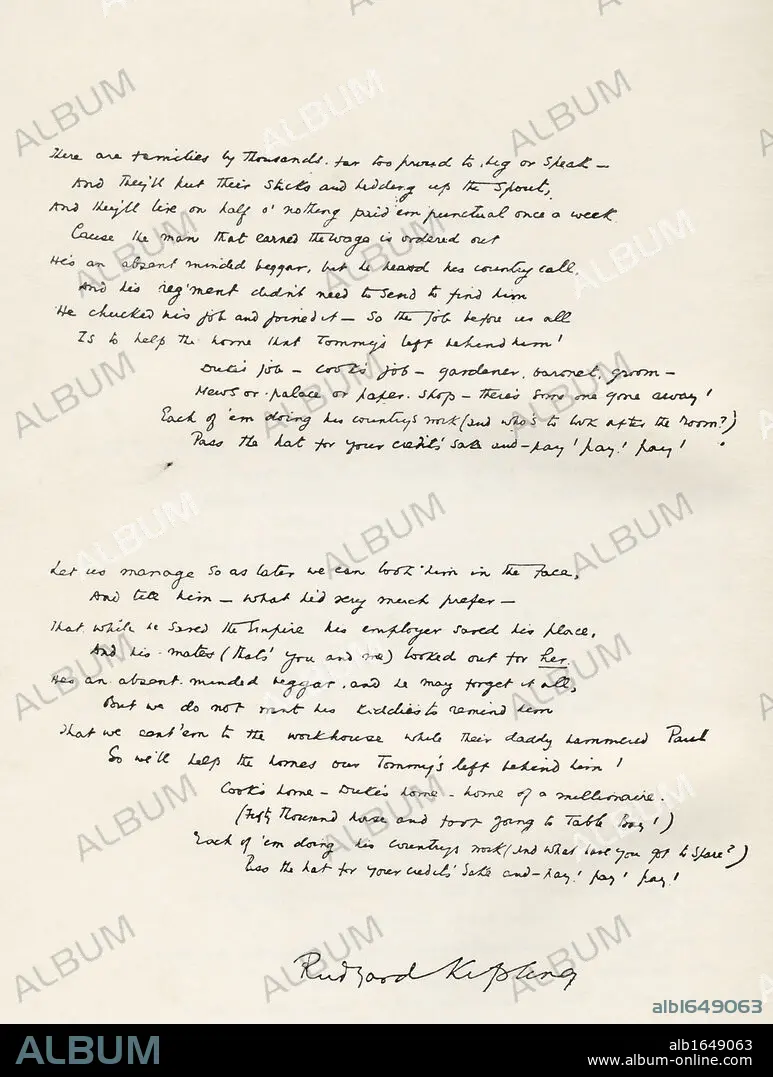 There are families by thousands, far too proud to beg or speak –
And they'll put their sticks and bedding up the spout,
And they'll live on half o' nothing paid 'em punctual once a week
Cause the man that earned the wage is ordered out
He's an absent minded beggar, but he heard his country call,
And his reg'ment didn't need to send to find him
He chucked his job and joined it – So the job before us all
Is to help the home that Tommy's left behind him!
Duke's job – cook's job – gardener, baronet, groom –
Mews or palace or paper-shop – there's some one gone away!
Each of 'em doing his country's work (and who's to look after the room?)
Pass the hat for your credit's sake and – pay! pay! pay!
Let us manage so as later we can look him in the face,
And tell him – what he'd very much prefer –
That while he saved the Empire his employer saved his place,
And his mates (that's you and me) looked out for her.
He's an absent-minded beggar, and he may forget it all,
But we do not want his kiddies to remind him
That we sent 'em to the workhouse while their daddy hammered Paul
So we'll help the homes our Tommy's left behind him!
Cook's home – Duke's home – home of a millionaire.
(Fifty thousand horse and foot going to Table Bay!)
Each of 'em doing his country's work (and what have you got to spare?)
Pass the hat for your credit's sake and – pay! pay! pay!
Rudyard Kipling
ALBUM
alb1649063
ALBUM
alb1649063
www.album-online.com